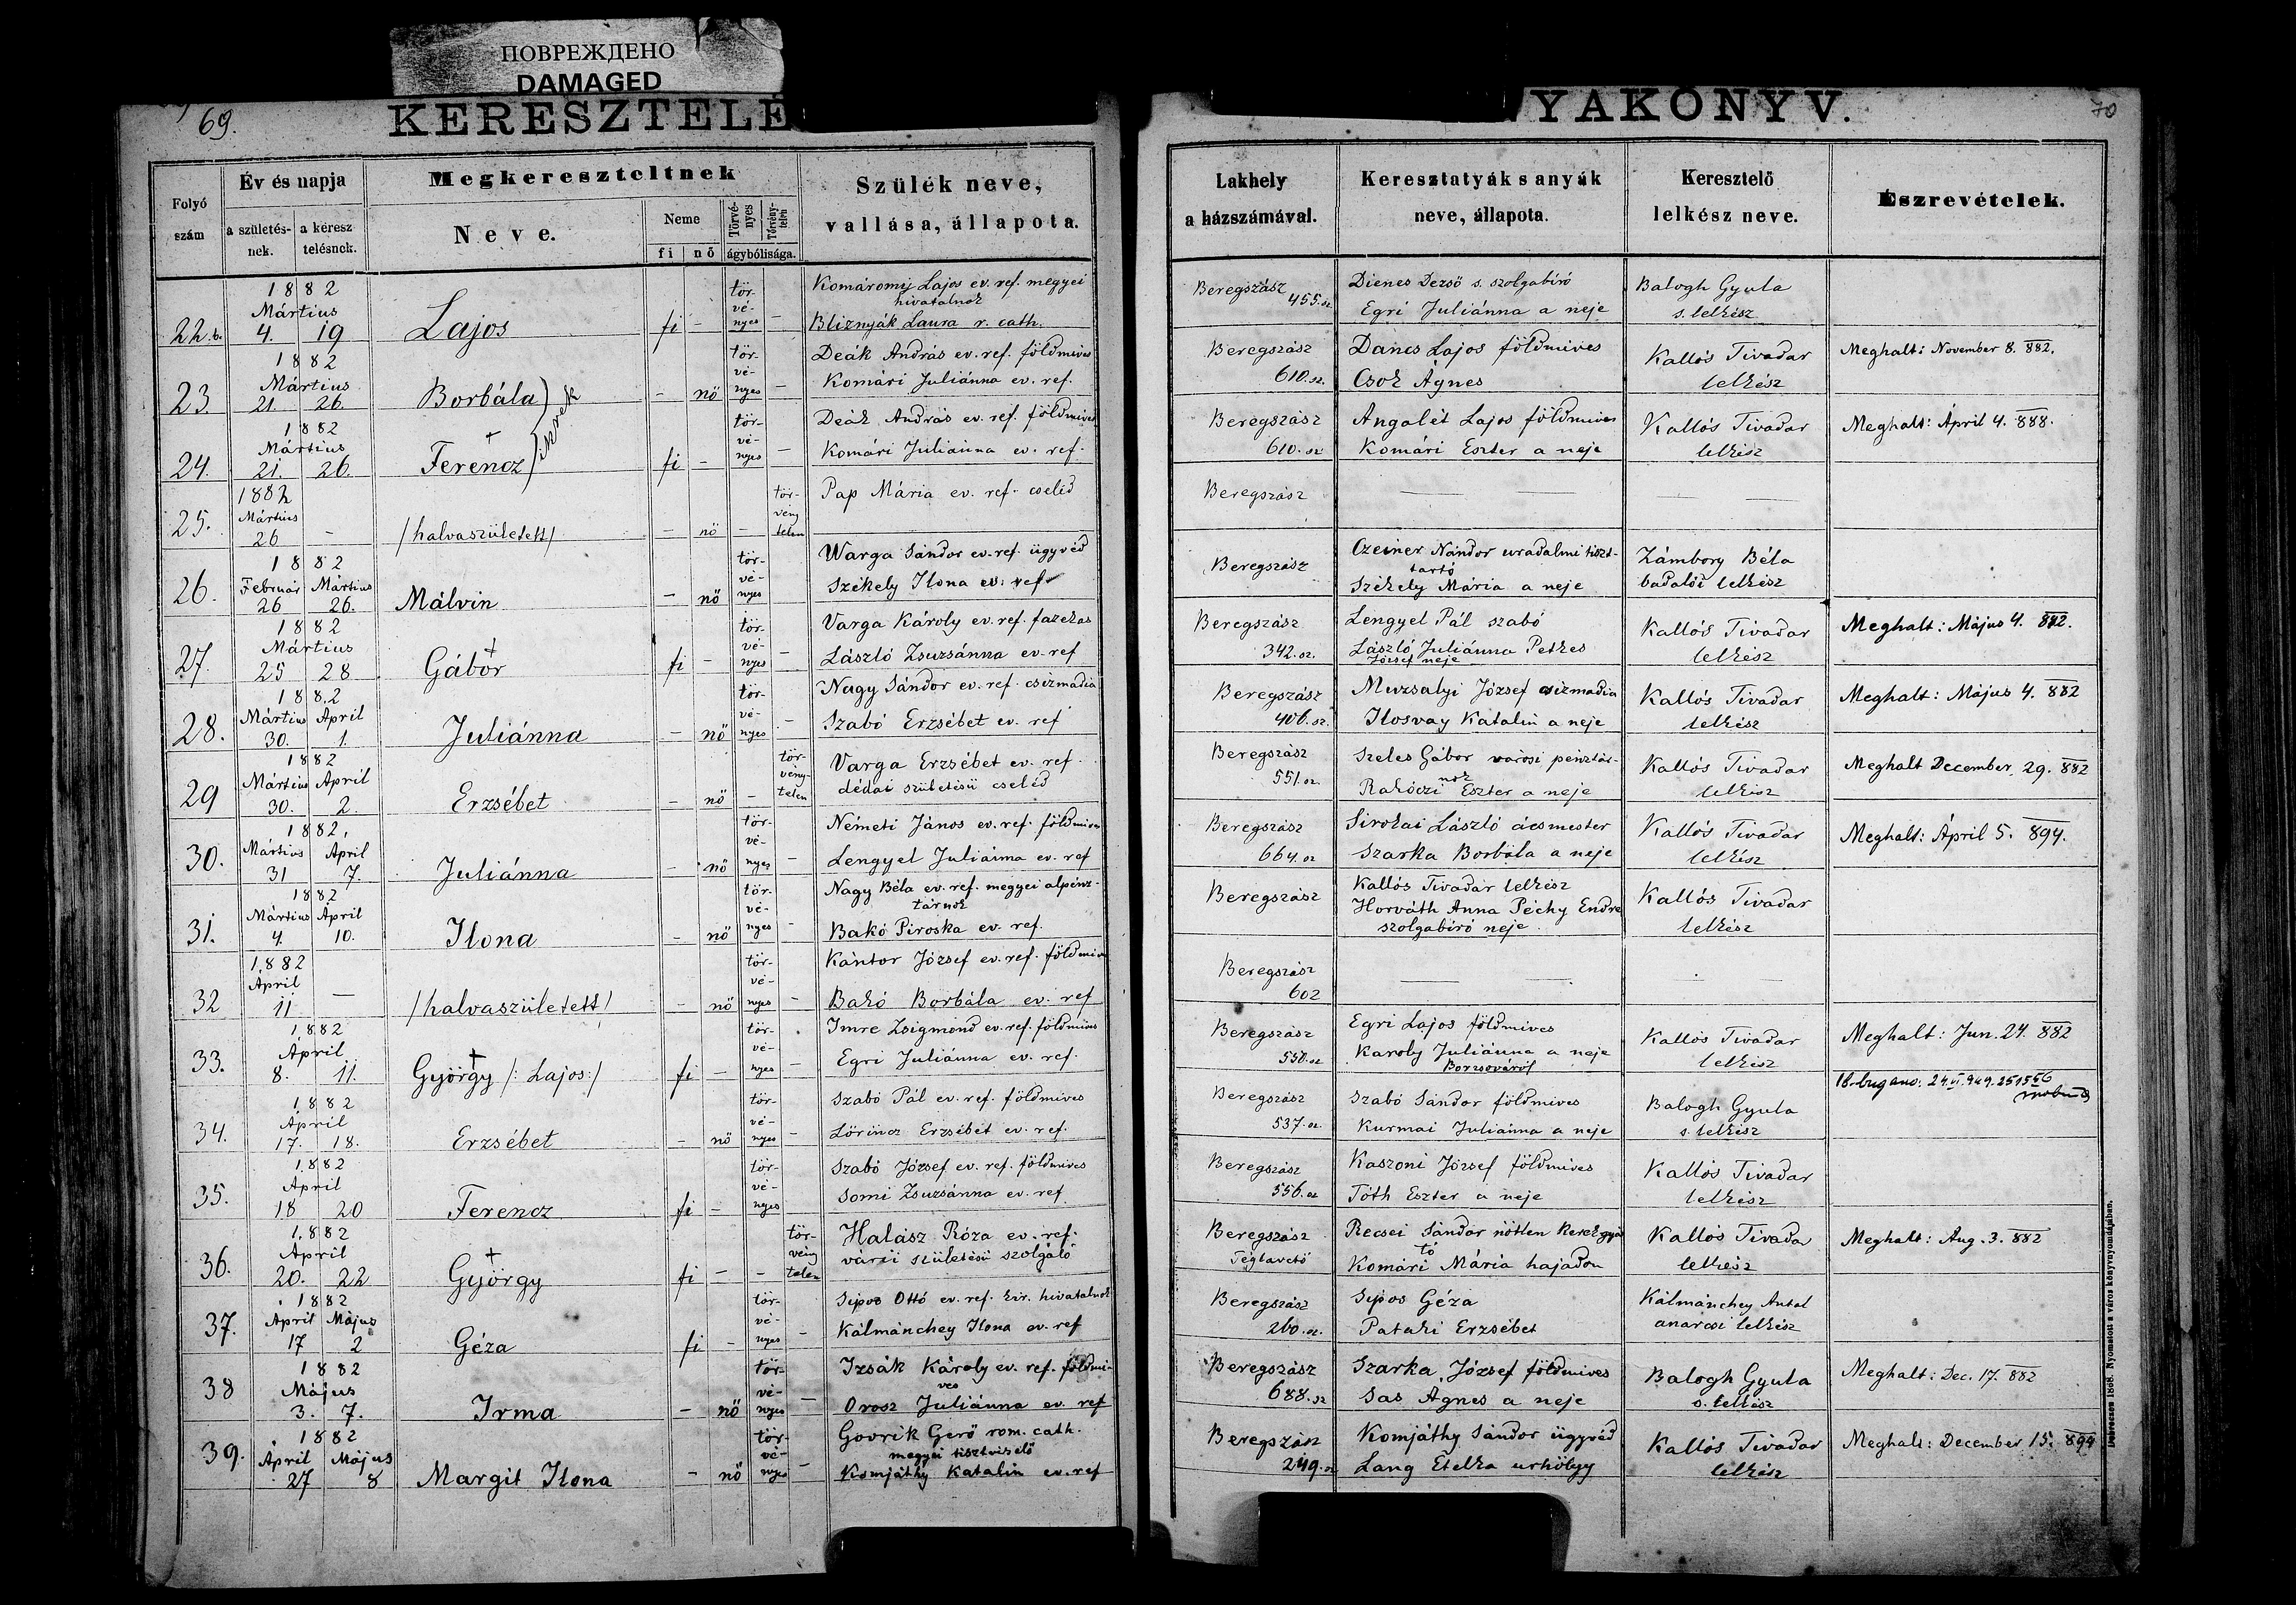 ПОВРЕЖДЕНО
DAMAGED
69.
KERESZTELÉ
YAKONYV.
70
Folyó szám
Év és napja
a születés-nek.
a keresz telésnek.
Megkereszteltnek
Neve.
Neme
fi nő
Törvé-nyes
Törvény-telen
ágybólisága.
Szülék neve,
vallása, állapota.
Lakhely
a házszámával.
Keresztatyák s anyák
neve, állapota.
Keresztelő
lelkész neve.
Észrevételek.
22.b. 1882 Mártius 4. 19 Lajos fi – tör-vé-nyes –
Komáromy Lajos ev. ref. megyei
hivatalnok
Bliznyák Laura r. cath.
Beregszász 455. sz
Dienes Dezső s. szolgabíró
Egri Juliánna a neje
Balogh Gyula
s. lelkész
23. 1882 Mártius 21. 26. Borbála – nő tör-vé-nyes –
Deák András ev. ref. földmives
Komári Juliánna ev. ref.
Beregszász 610. sz.
Dancs Lajos földmives
Csok Agnes
Kallós Tivadar
lelkész
Meghalt: November 8. 882.
ikrek
24. 1882 Mártius 21. 26. Ferencz fi – tör-vé-nyes –
Deák András ev. ref. földmives
Komári Juliánna ev. ref.
Beregszász 610. sz
Angalét Lajos földmives
Komári Eszter a neje
Kallós Tivadar
lelkész
Meghalt: Ápril 4. 888.
25. 1882 Mártius 26 – /halvaszületett/ – nő – tör-vény telen
Pap Mária ev. ref. cseléd
Beregszász
26. 1882 Február 26 Mártius 26. Málvin – nő tör-vé-nyes
Warga Sándor ev. ref. ügyvéd
Székely Ilona ev. ref
Beregszász
Czeiner Nándor uradalmi tiszt-
tartó
Székely Mária a neje
Zámbory Béla
badalói lelkész
27. 1882 Mártius 25 28 Gábor fi – tör-vé-nyes –
Varga Károly ev. ref. fazekas
László Zsuzsánna ev. ref
Beregszász 342. sz.
Lengyel Pál szabó
László Juliánna Petkes
József neje
Kallós Tivadar
lelkész
Meghalt: Május 4. 882.
28. 1882 Mártius 30. April 1. Juliánna – nő tör-vé-nyes –
Nagy Sándor ev. ref. csizmadia
Szabó Erzsébet ev. ref
Beregszász 406. sz.
Muzsalyi József csizmadia
Ilosvay Katalin a neje
Kallós Tivadar
lelkész
Meghalt: Május 4. 882
29 1882 Mártius 30. April 2. Erzsébet – nő – tör-vény-telen
Varga Erzsébet ev. ref.
dédai születésü cseléd
Beregszász 551. sz
Szeles Gábor városi pénztár-
nok
Rakóczi Eszter a neje
Kallós Tivadar
lelkész
Meghalt December 29. 882
30. 1882. Mártius 31 April 7. Juliánna – nő tör-vé-nyes –
Németi János ev. ref. földmives
Lengyel Juliánna ev. ref
Beregszász 664. sz
Sirokai László ácsmester
Szarka Borbála a neje
Kallós Tivadar
lelkész
Meghalt: Ápril 5. 894.
31. 1882 Mártius 4. Ápril 10. Ilona – nő tör-vé-nyes –
Nagy Béla ev. ref. megyei alpénz-
tárnok
Bakó Piroska ev. ref.
Beregszász
Kallós Tivadar lelkész
Horváth Anna Péchy Endre
szolgabíró neje
Kallós Tivadar
lelkész
32 1882 Ápril 11 – /halvaszületett/ – nő tör-vé-nyes –
Kántor József ev. ref. földmives
Bakó Borbála ev. ref
Beregszász 602
33. 1882 Ápril 8. 11. György /: Lajos:/ fi – tör-vé-nyes –
Imre Zsigmond ev. ref. földmives
Egri Juliánna ev. ref.
Beregszász 550. sz
Egri Lajos földmives
Karoly Juliánna a neje
Borzsováról
Kallós Tivadar
lelkész
Meghalt: Jun. 24. 882
34. 1882 Ápril 17. 18. Erzsébet – nő tör-vé-nyes –
Szabó Pál ev. ref. földmives
Lörincz Erzsébet ev. ref.
Beregszász 537. sz
Szabó Sándor földmives
Kurmai Juliánna a neje
Balogh Gyula
s. lelkész
35. 1882 Ápril 18 20 Ferencz fi – tör-vé-nyes
Szabó József ev. ref. földmives
Somi Zsuzsánna ev. ref
Beregszász 556. sz
Kaszoni József földmives
Tóth Eszter a neje
Kallós Tivadar
lelkész
36. 1882 Ápril 20. 22 György fi – – tör-vény telen
Halász Róza ev. ref.
várii születésü szolgáló
Beregszász
Téglavető
Recsei Sándor nőtlen Kerékgyár
tó
Komári Mária hajadon
Kallós Tivadar
lelkész
Meghalt: Aug. 3. 882
37. 1882 April 17 Május 2 Géza fi – tör-vé-nyes –
Sipos Ottó ev. ref. kir. hivatalnok
Kálmánchey Ilona ev. ref
Beregszász 260. sz.
Sipos Géza
Pataki Erzsébet
Kálmánchey Antal
anarcsi lelkész
38 1882 Május 3. 7. Irma – nő tör-vé-nyes –
Izsák Károly ev. ref. földmi-
ves
Orosz Juliánna ev. ref
Beregszász 688. sz
Szarka József földmives
Sas Agnes a neje
Balogh Gyula
s. lelkész
Meghalt: Dec. 17. 882
39. 1882 Ápril 27 Május 8 Margit Ilona – nő tör-vé-nyes –
Govrik Gerő rom. cath.
megyei tisztviselő
Komjáthy Katalin ev. ref
Beregszász 249. sz
Komjáthy Sándor ügyvéd
Lang Etelka urhölgy
Kallós Tivadar
lelkész
Meghalt: December 15. 894
Debreczen 1868. Nyomatott a város könyvnyomdájában.